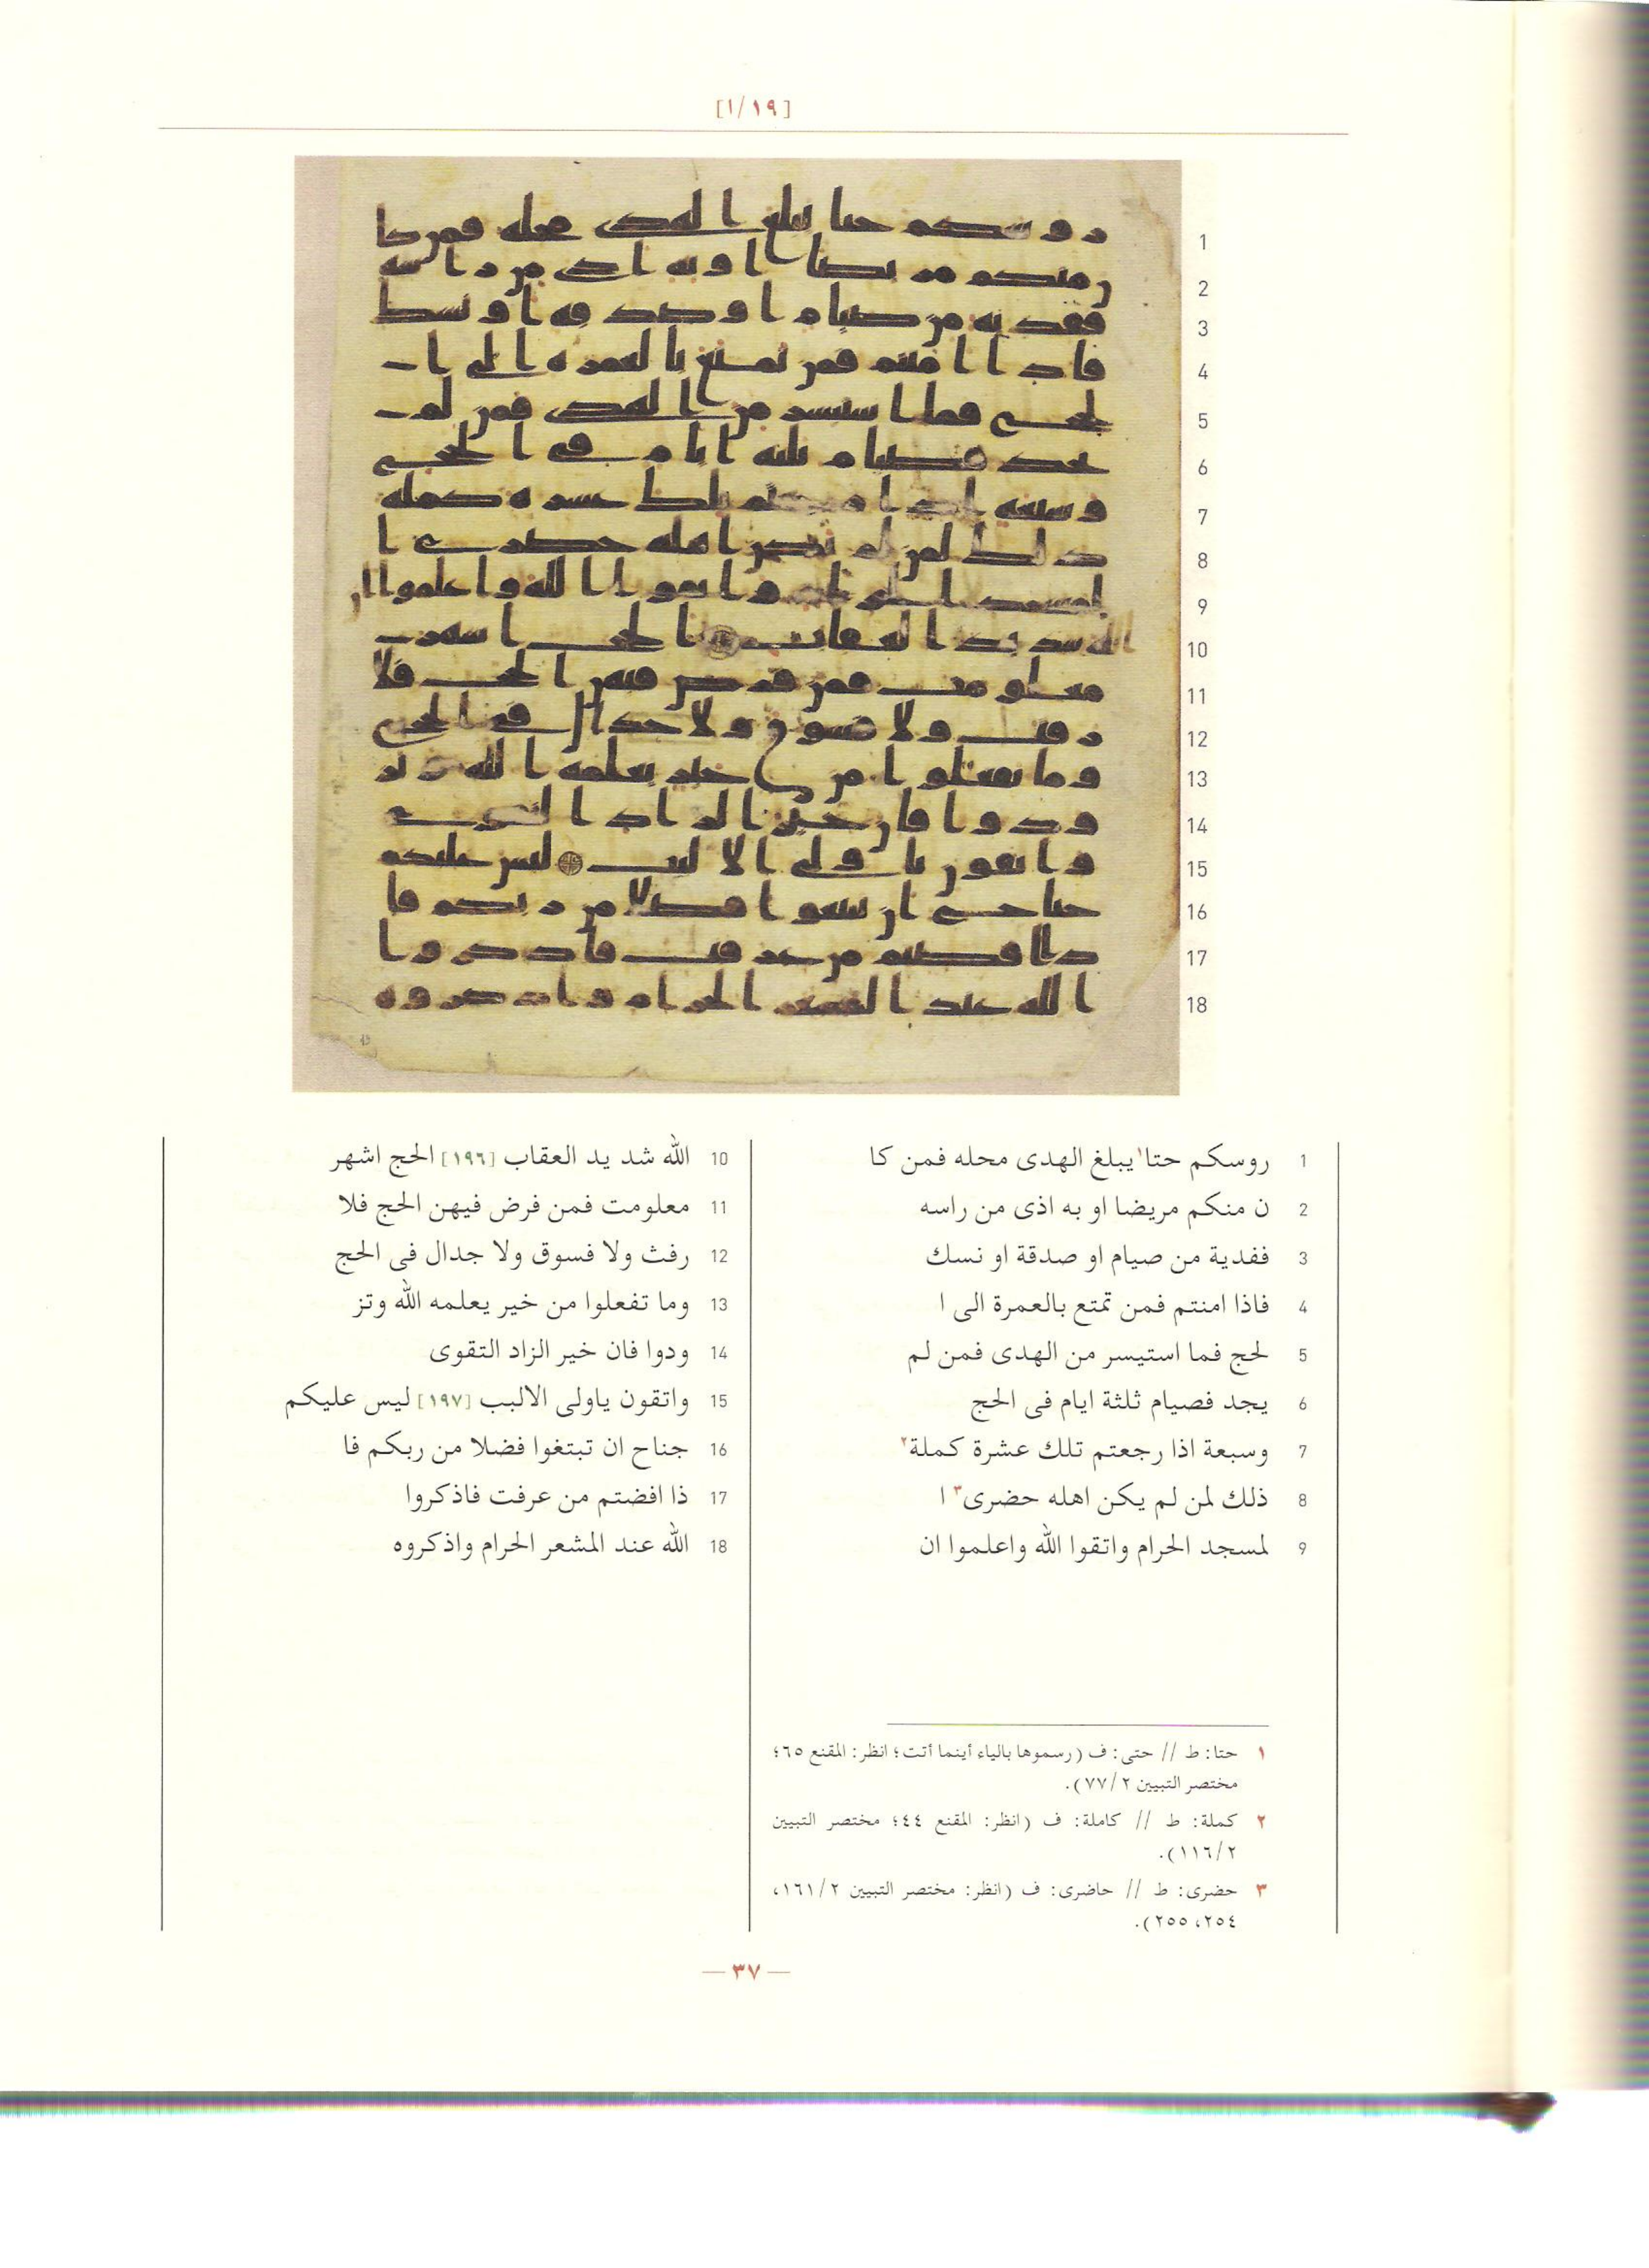 [١/١٩]
1 روسكم حتا١ يبلغ الهدى محله فمن كا
2 ن منكم مريضا او به اذى من راسه
3 ففدية من صيام او صدقة او نسك
4 فاذا امنتم فمن تمتع بالعمرة الى ا
5 لحج فما استيسر من الهدى فمن لم
6 يجد فصيام ثلثة ايام فى الحج
7 وسبعة اذا رجعتم تلك عشرة كملة٢
8 ذلك لمن لم يكن اهله حضرى٣ ا
9 لمسجد الحرام واتقوا الله واعلموا ان
10 الله شد يد العقاب [١٩٦] الحج اشهر
11 معلومت فمن فرض فيهن الحج فلا
12 رفث ولا فسوق ولا جدال فى الحج
13 وما تفعلوا من خير يعلمه الله وتز
14 ودوا فان خير الزاد التقوى
15 واتقون ياولى الالبب [١٩٧] ليس عليكم
16 جناح ان تبتغوا فضلا من ربكم فا
17 ذا افضتم من عرفت فاذكروا
18 الله عند المشعر الحرام واذكروه
١ حتا: ط // حتى: ف (رسموها بالياء أينما أتت؛ انظر: المقنع ٦٥؛
مختصر التبيين ٧٧/٢).
٢ كملة: ط // كاملة: ف (انظر: المقنع ٤٤؛ مختصر التبيين
١١٦/٢).
٣ حضرى: ط // حاضرى: ف (انظر: مختصر التبيين ١٦١/٢،
٢٥٤، ٢٥٥).
— ٣٧ —